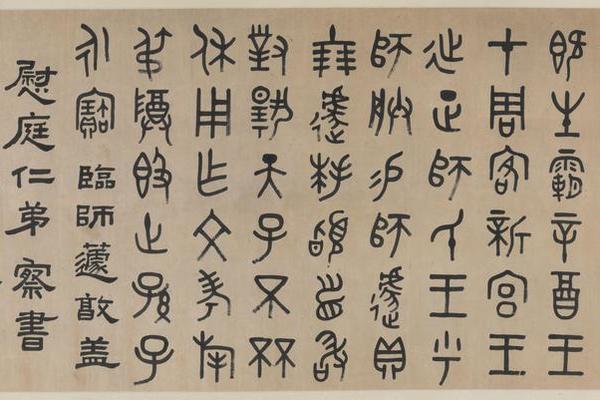 既生霸辛酉王
才周客新宮王
征正師氏王乎
師朕易師遽貝
十朋遽拜𩒨首敢
對揚天子不㔻
休用乍文考旄
叔尊𣪘世孫子
永寶 臨師遽敦蓋
慰庭仁弟 察書